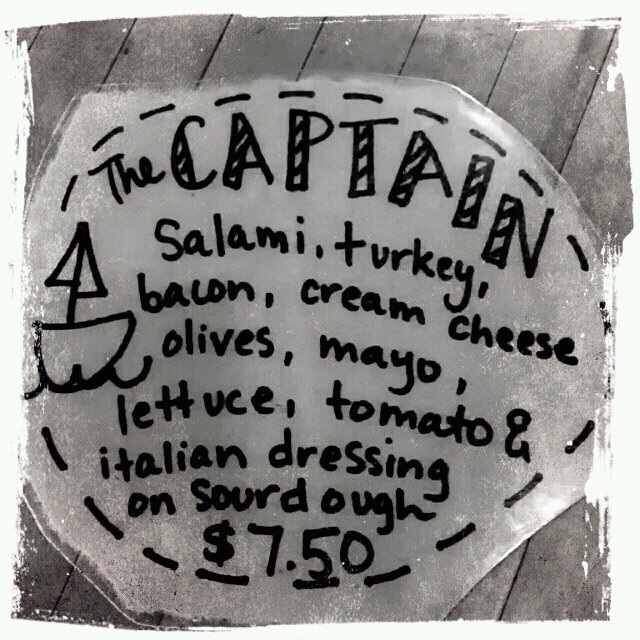 The CAPTAIN
Salami, turkey,
bacon, cream cheese
olives, mayo,
lettuce, tomato &
italian dressing
on sourdough
$7.50